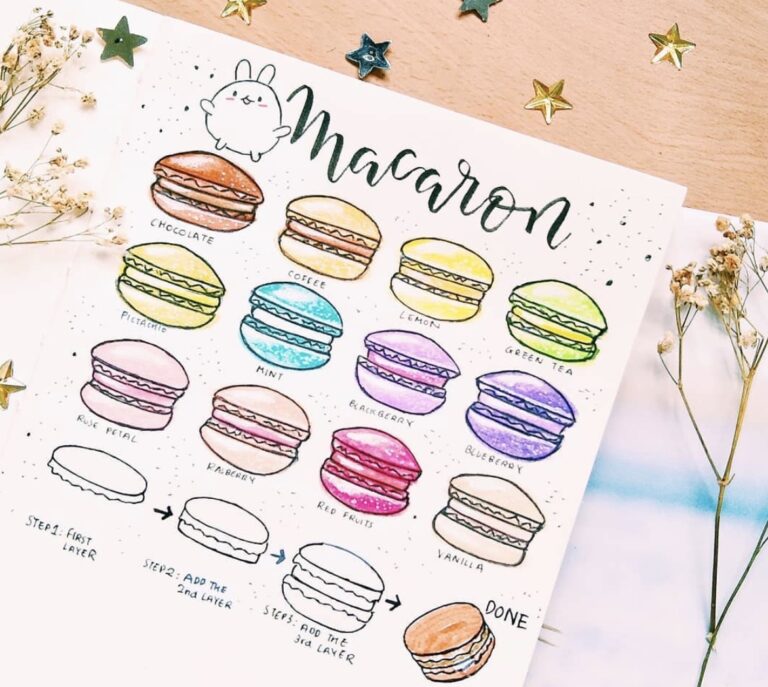 Macaron
CHOCOLATE
COFFEE
LEMON
GREEN TEA
PISTACHIO
MINT
BLACKBERRY
BLUEBERRY
ROSE PETAL
RASBERRY
RED FRUITS
VANILLA
STEP1: FIRST
LAYER
STEP2: ADD THE
2nd LAYER
STEP3: ADD THE
3rd LAYER
DONE